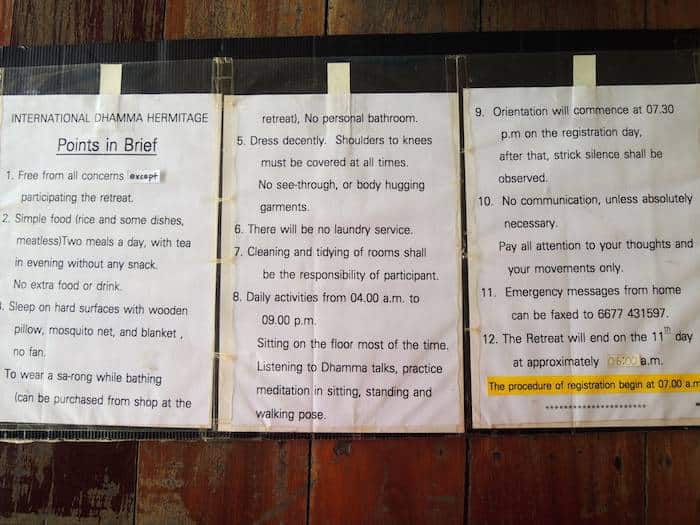 INTERNATIONAL DHAMMA HERMITAGE
Points in Brief
1. Free from all concerns except
participating the retreat.
2. Simple food (rice and some dishes,
meatless)Two meals a day, with tea
in evening without any snack.
No extra food or drink.
. Sleep on hard surfaces with wooden
pillow, mosquito net, and blanket ,
no fan.
To wear a sa-rong while bathing
(can be purchased from shop at the
retreat), No personal bathroom.
5. Dress decently. Shoulders to knees
must be covered at all times.
No see-through, or body hugging
garments.
6. There will be no laundry service.
7. Cleaning and tidying of rooms shall
be the responsibility of participant.
8. Daily activities from 04.00 a.m. to
09.00 p.m.
Sitting on the floor most of the time.
Listening to Dhamma talks, practice
meditation in sitting, standing and
walking pose.
9. Orientation will commence at 07.30
p.m on the registration day,
after that, strick silence shall be
observed.
10. No communication, unless absolutely
necessary.
Pay all attention to your thoughts and
your movements only.
11. Emergency messages from home
can be faxed to 6677 431597.
12. The Retreat will end on the 11th day
at approximately 06:00 a.m.
The procedure of registration begin at 07.00 a.m
********************